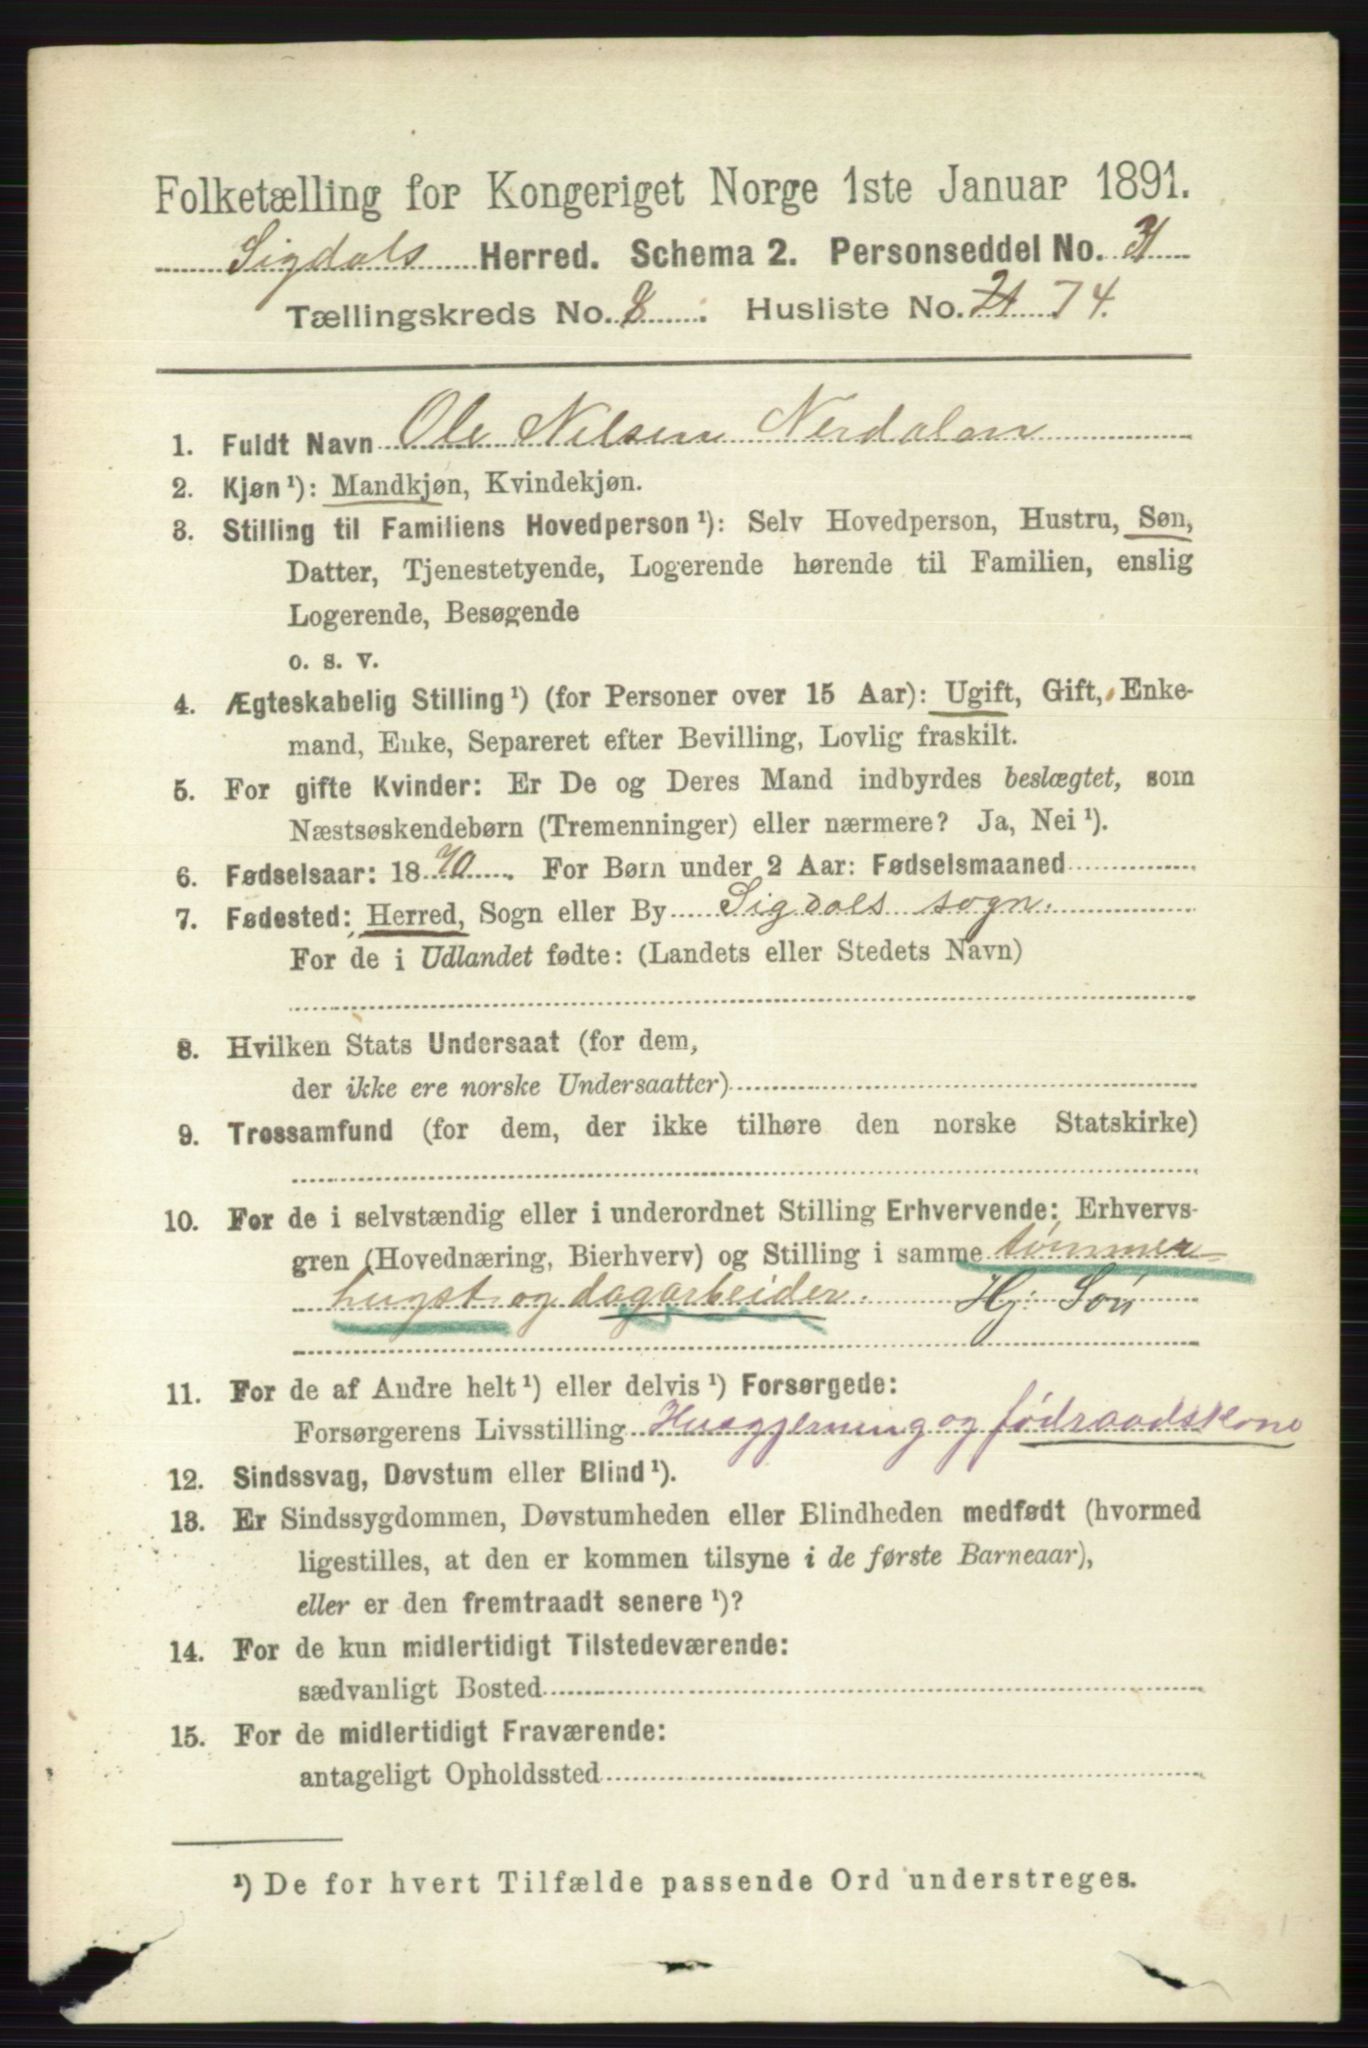 Folketælling for Kongeriget Norge 1ste Januar 1891.
Sigdals Herred. Schema 2. Personseddel No.
Tællingskreds No. 8. Husliste No. 74.
1. Fuldt Navn Ole Nilsen Nerdalen
2. Kjøn ¹): Mandkjøn, Kvindekjøn.
3. Stilling til Familiens Hovedperson ¹): Selv Hovedperson, Hustru, Søn,
Datter, Tjenestetyende, Logerende hørende til Familien, enslig
Logerende, Besøgende
o. s. v.
4. Ægteskabelig Stilling ¹) (for Personer over 15 Aar): Ugift, Gift, Enke-
mand, Enke, Separeret efter Bevilling, Lovlig fraskilt.
5. For gifte Kvinder: Er De og Deres Mand indbyrdes beslægtet, som
Næstsøskendebørn (Tremenninger) eller nærmere? Ja, Nei ¹).
6. Fødselsaar: 1870. For Børn under 2 Aar: Fødselsmaaned
7. Fødested: Herred, Sogn eller By Sigdals sogn.
For de i Udlandet fødte: (Landets eller Stedets Navn)
8. Hvilken Stats Undersaat (for dem,
der ikke ere norske Undersaatter)
9. Trossamfund (for dem, der ikke tilhøre den norske Statskirke)
10. For de i selvstændig eller i underordnet Stilling Erhvervende: Erhvervs-
gren (Hovednæring, Bierhverv) og Stilling i samme tømmer-
hugst og dagarbeider. Hj: Søn
11. For de af Andre helt ¹) eller delvis ¹) Forsørgede:
Forsørgerens Livsstilling Husgjerning og fødraadskone
12. Sindssvag, Døvstum eller Blind ¹).
13. Er Sindssygdommen, Døvstumheden eller Blindheden medfødt (hvormed
ligestilles, at den er kommen tilsyne i de første Barneaar),
eller er den fremtraadt senere ¹)?
14. For de kun midlertidigt Tilstedeværende:
sædvanligt Bosted
15. For de midlertidigt Fraværende:
antageligt Opholdssted
¹) De for hvert Tilfælde passende Ord understreges.